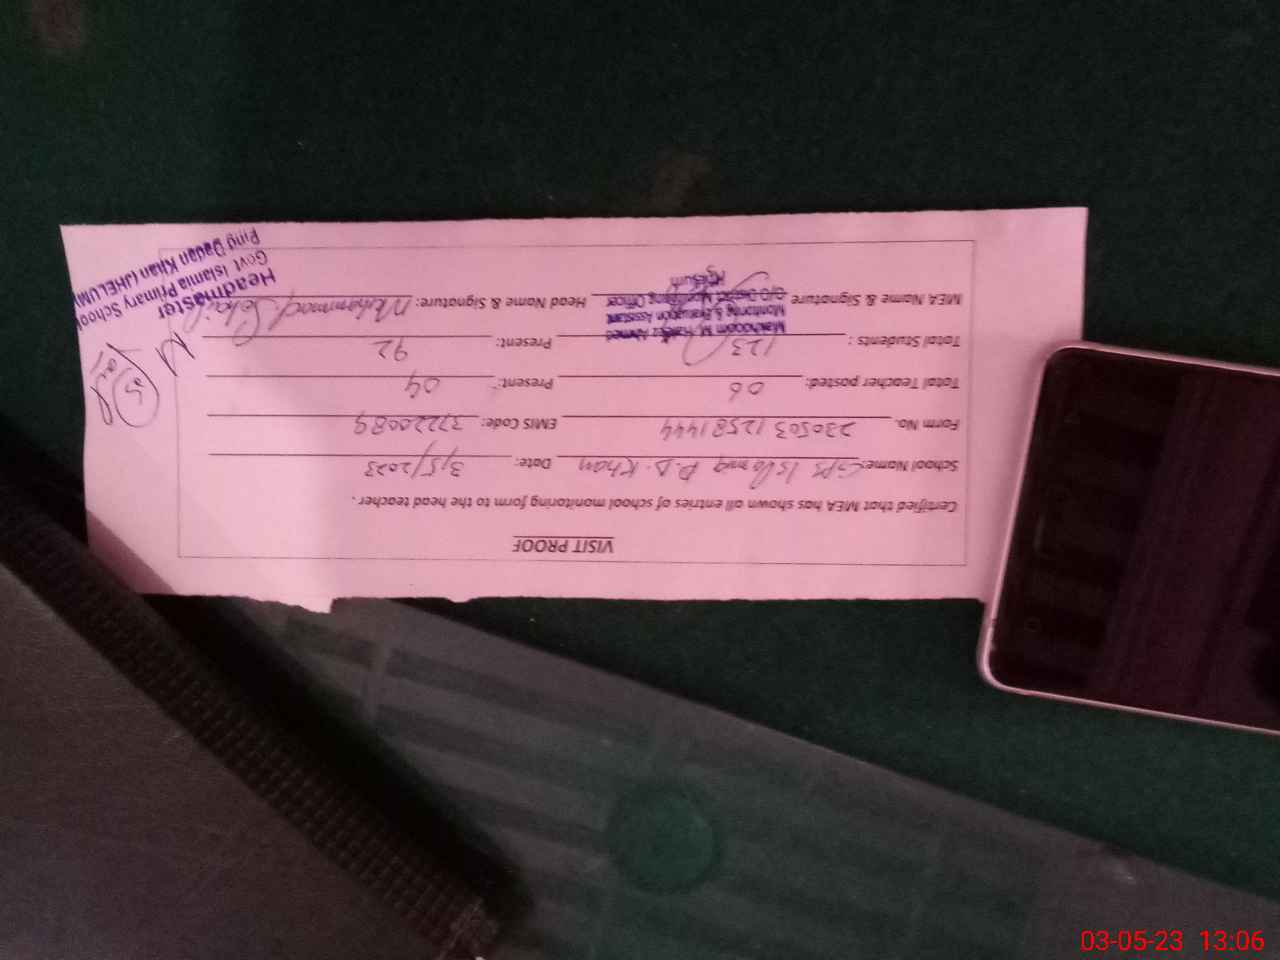 VISIT PROOF
Certified that MEA has shown all entries of school monitoring form to the head teacher.
School Name: GPS Islamia P.D. Khan Date: 3/5/2023
Form No. 230503 12581444 EMIS Code: 37220089
Total Teacher posted: 06 Present: 04
Total Students: 123 Present: 92
MEA Name & Signature Head Name & Signature: Muhammad Sohail
Makhdoom M. Ahmed
Monitoring & Evaluation Assistant
O/O District Monitoring Officer
Jhelum
Headmaster
Govt Islamia Primary School
Pind Dadan Khan (JHELUM)
03-05-23 13:06